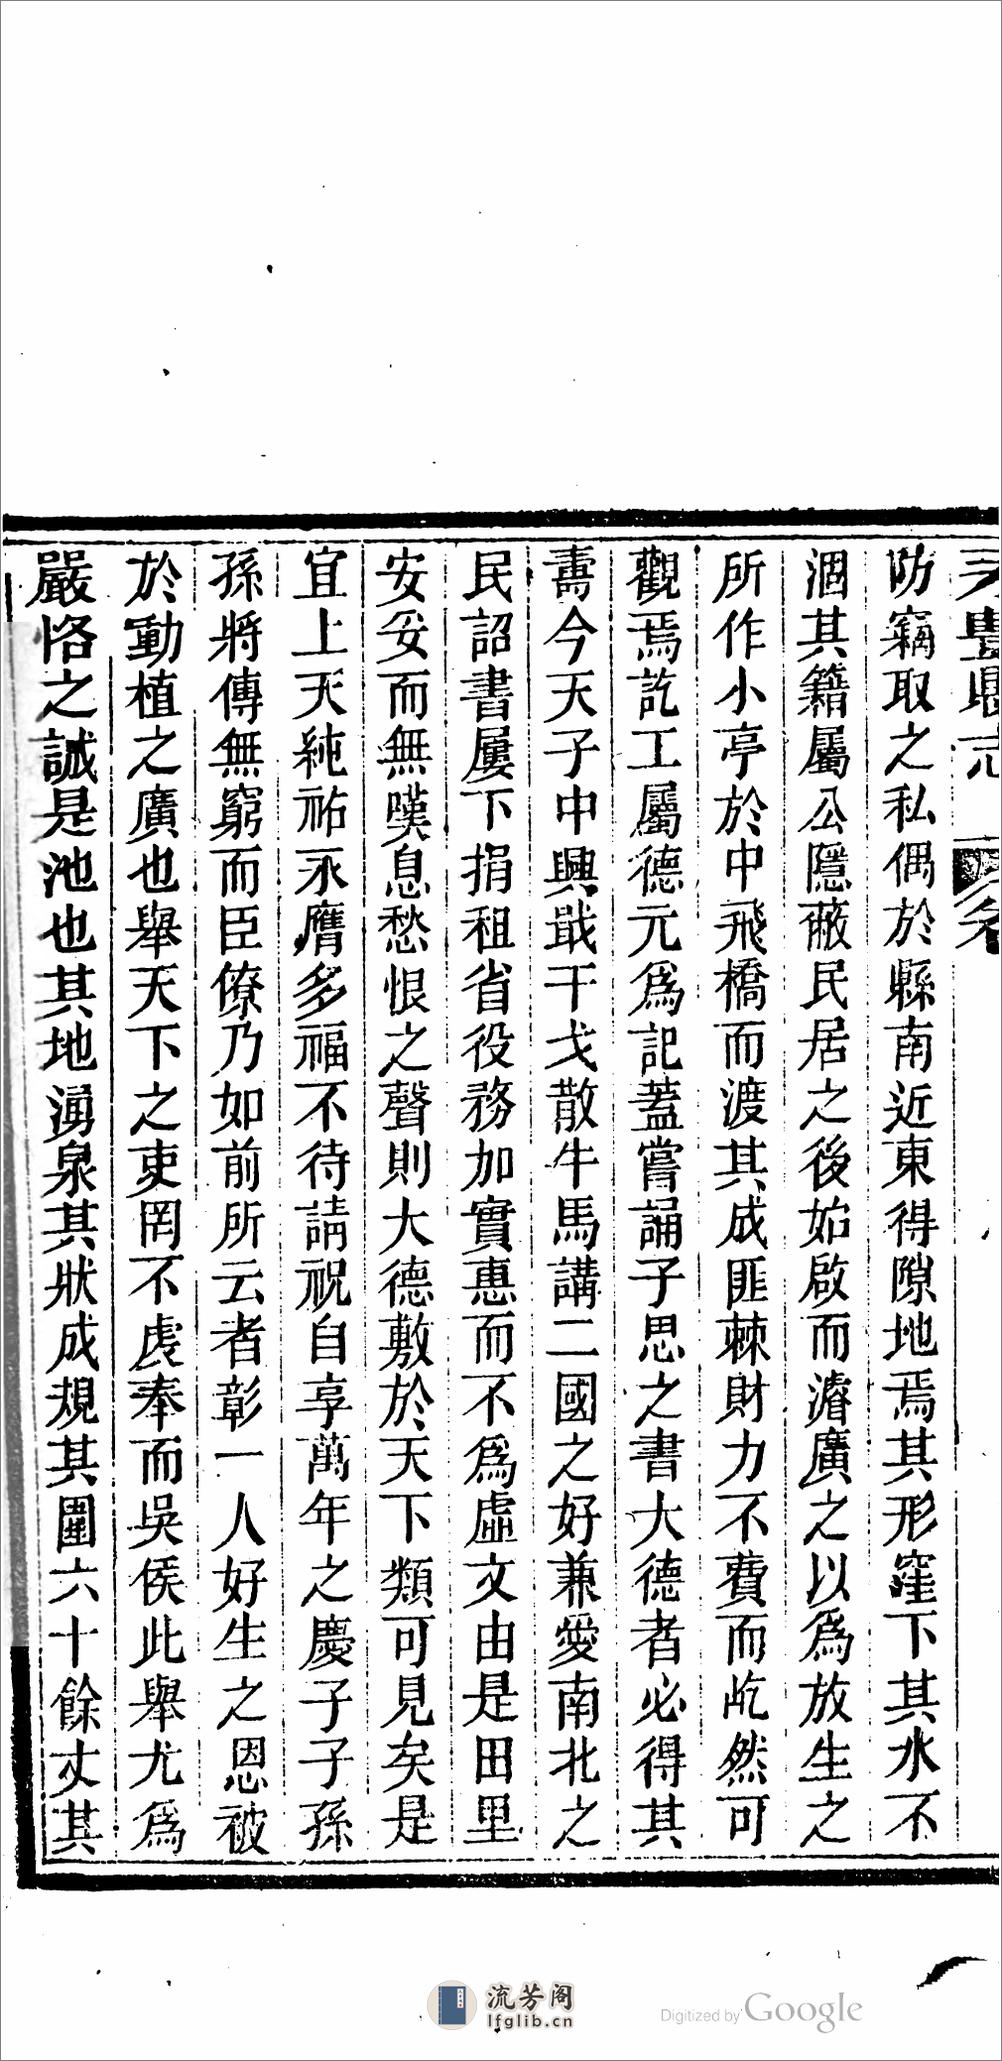 永豐縣志
防竊取之私偶於縣南近東得隙地焉其形窪下其水不
涸其籍屬公隱蔽民居之後始啟而濬廣之以爲放生之
所作小亭於中飛橋而渡其成匪棘財力不費而屹然可
觀焉訖工屬德元爲記蓋嘗誦子思之書大德者必得其
壽今天子中興戢干戈散牛馬講二國之好兼愛南北之
民詔書屢下捐租省役務加實惠而不爲虛文由是田里
安妥而無嘆息愁恨之聲則大德敷於天下類可見矣是
宜上天純祐永膺多福不待請祝自享萬年之慶子子孫
孫將傳無窮而臣僚乃如前所云者彰一人好生之恩被
於動植之廣也舉天下之吏罔不虔奉而吳侯此舉尤爲
嚴恪之誠是池也其地湧泉其狀成規其圍六十餘丈其
流芳阁
lfglib.cn
Digitized by Google